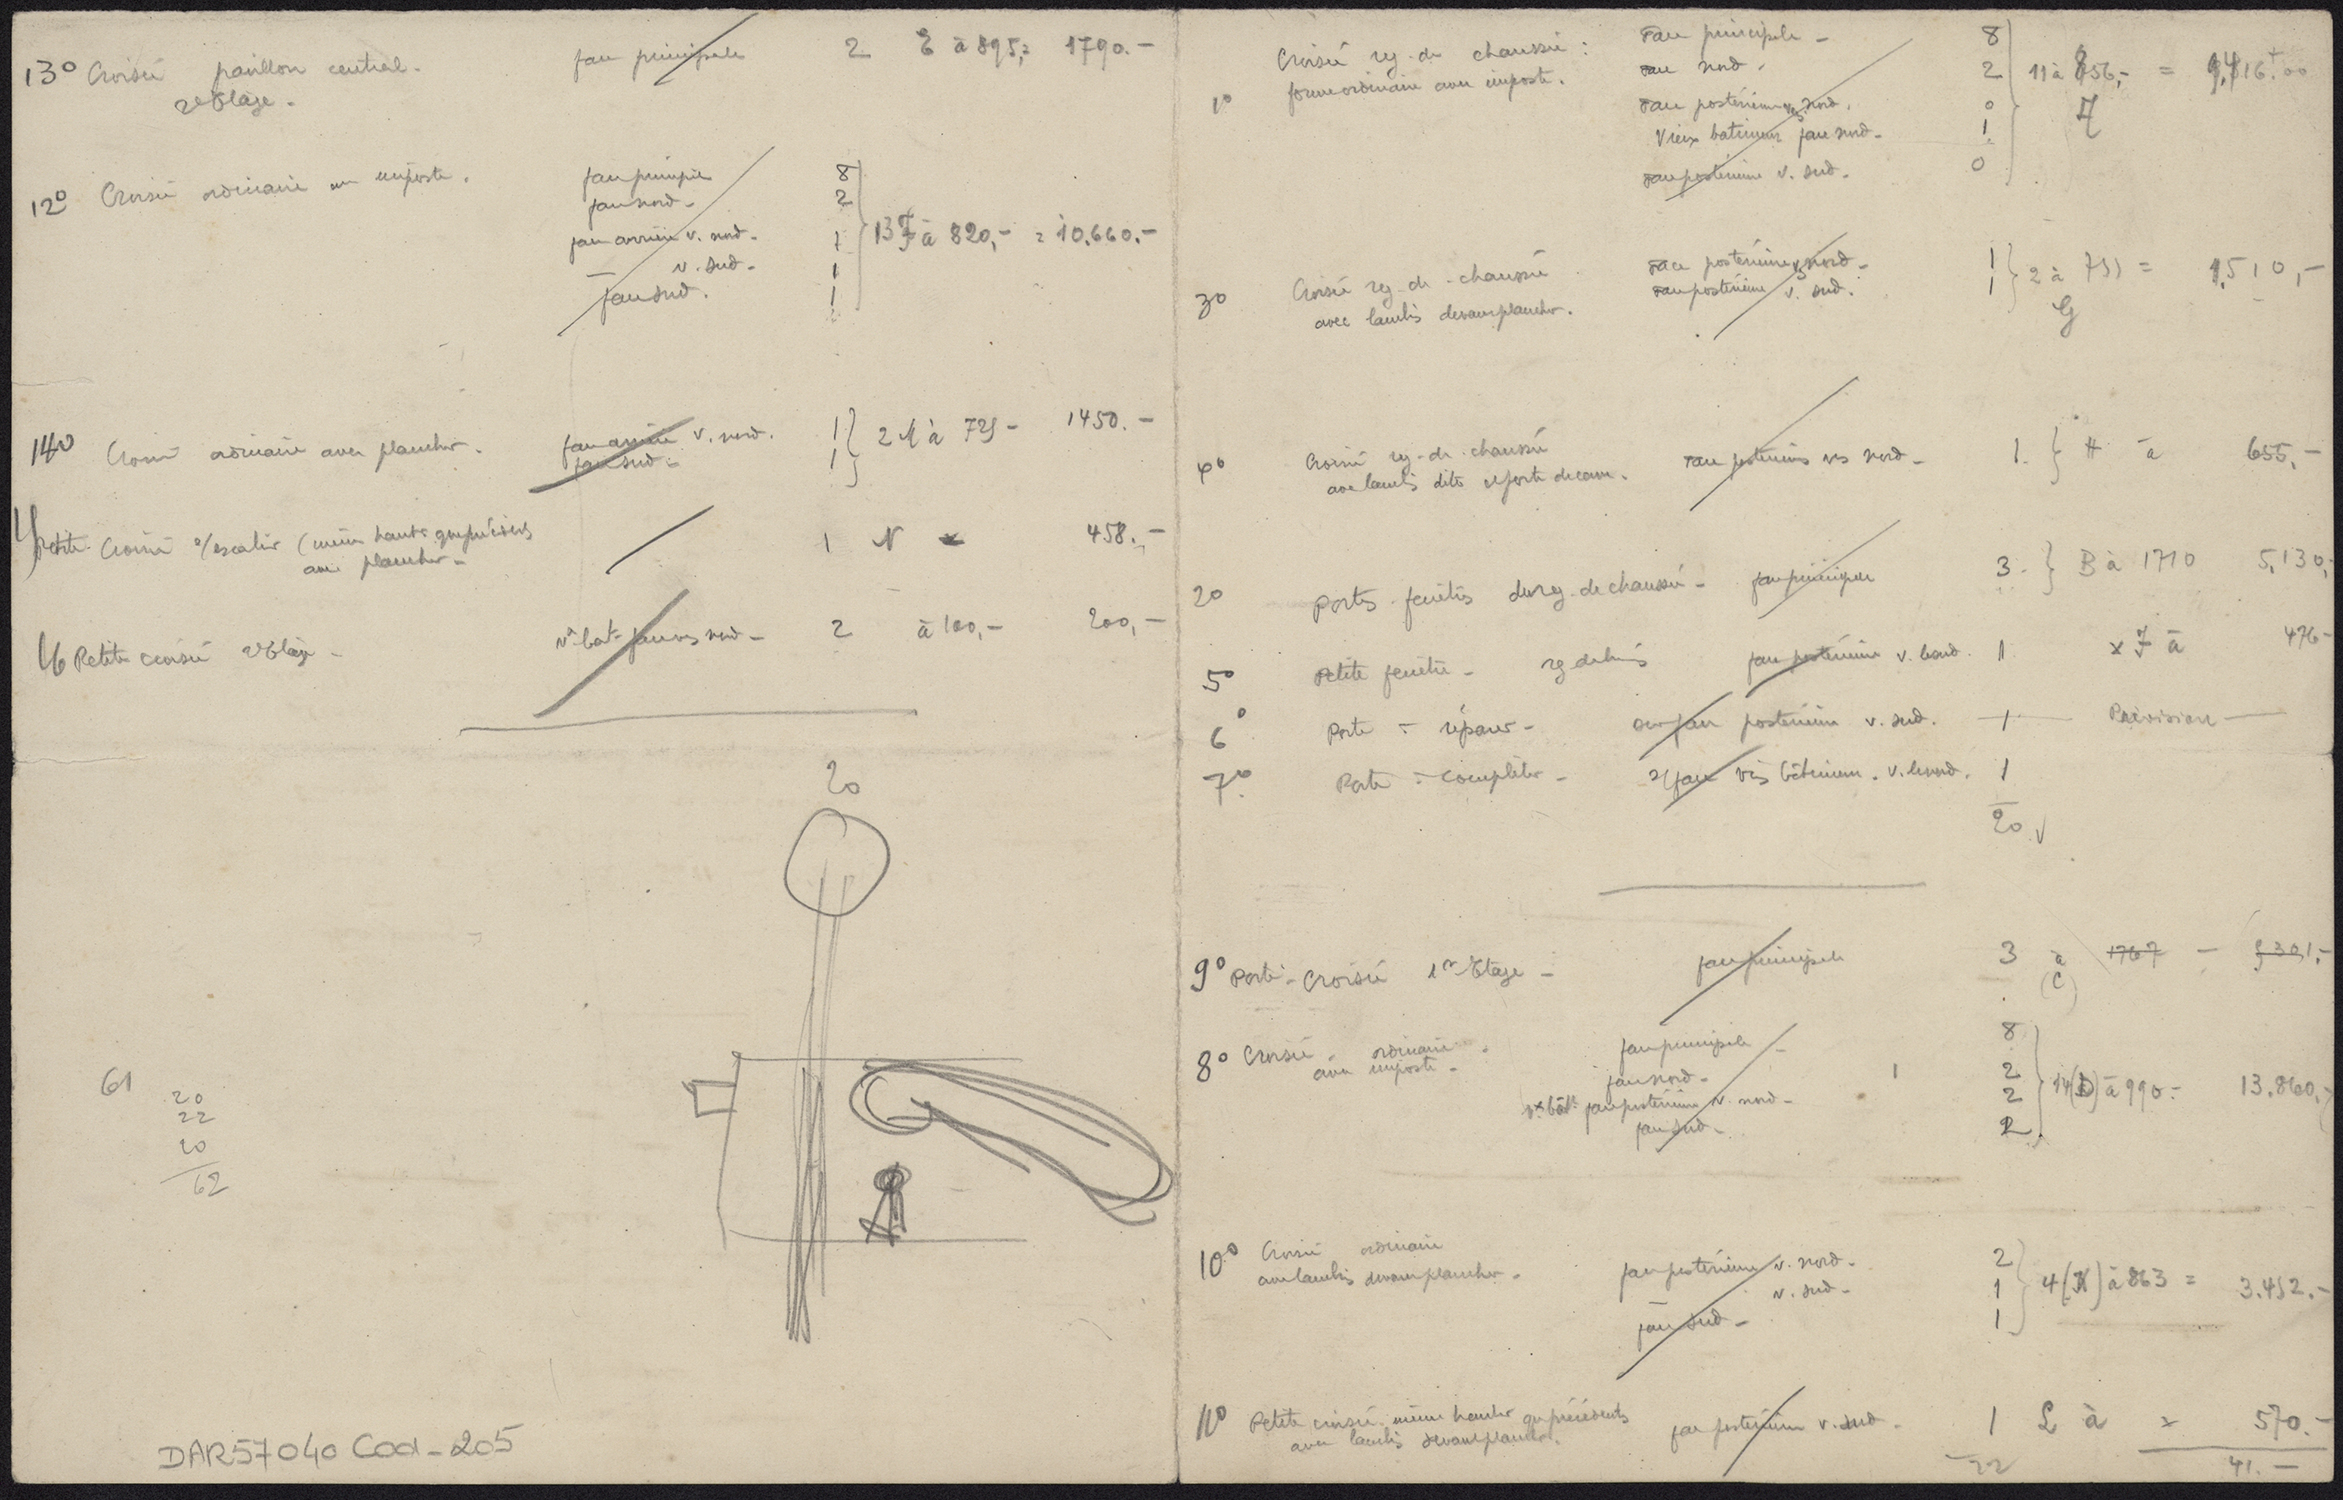 13° Croisée pavillon central. face principale 2 E à 895,= 1790.-
2e Etage.
12° Croisée ordinaire avec imposte. face principale 8
face nord - 2
face arrière v. nord - 1 13 F à 820,- = 10.660.-
— v. sud - 1
face sud. 1
14° Croisée ordinaire avec plancher. face arrière v. nord. 1 2 M à 725 - 1450.-
face sud - 1
15 Petite Croisée s/escalier (même haut. que précédents 1 N 458.-
avec plancher -
16 Petite croisée 2e Etage - face vers nord - 2 à 100,- 200,-
20
61
20
22
20
62
DAR57040 Cod-205
1° Croisée rez-de chaussée : Face principale - 8
forme ordinaire avec imposte. Face nord - 2 11 à 856,- =
Face postérieure vers nord. 0
Vieux batiment face nord - 1
Face postérieure v. sud. 0
3° Croisée rez-de-chaussée Face postérieure v. nord - 1 2 à 755 = 1,510,-
avec lambris devant plancher. Face postérieure v. sud. 1 G
4° Croisée rez-de-chaussée Face postérieure vers nord - 1. H à 655,-
avec lambris dito porte de cave.
20 Portes-fenêtres du rez-de chaussée - face principale 3. B à 1710 5,130,-
5° Petite fenêtre - face postérieure v. le sud. 1 x J à 476-
6° Porte à réparer - face postérieure v. sud. - 1 - Prévision -
7° Porte à compléter - face bâtiment. v. le nord. 1
20
9° Porte-Croisée 1er Etage - face principale 3 à 1767 - 5301,-
(C)
8° Croisée ordinaire. face principale - 8
avec imposte - face nord - 1 2
vx bât. face postérieure v. nord - 2 14 (D) à 990 - 13.860,-
face sud - 2
10° Croisée ordinaire face postérieure v. nord - 2
avec lambris devant plancher. v. sud - 1 4 (K) à 863 = 3.452.-
face sud - 1
11° Petite croisée même hauteur que précédents face postérieure v. sud - 1 L à = 570.-
avec lambris devant plancher.
22 41.-